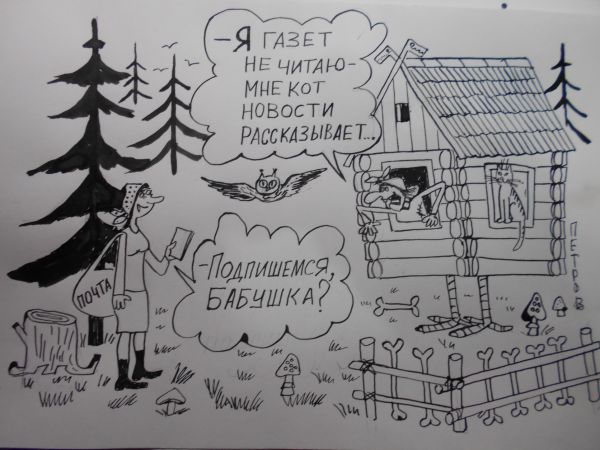 -Я ГАЗЕТ
НЕ ЧИТАЮ-
МНЕ КОТ
НОВОСТИ
РАССКАЗЫВАЕТ...
-ПОДПИШЕМСЯ,
БАБУШКА?
ПОЧТА
ПЕТРОВ